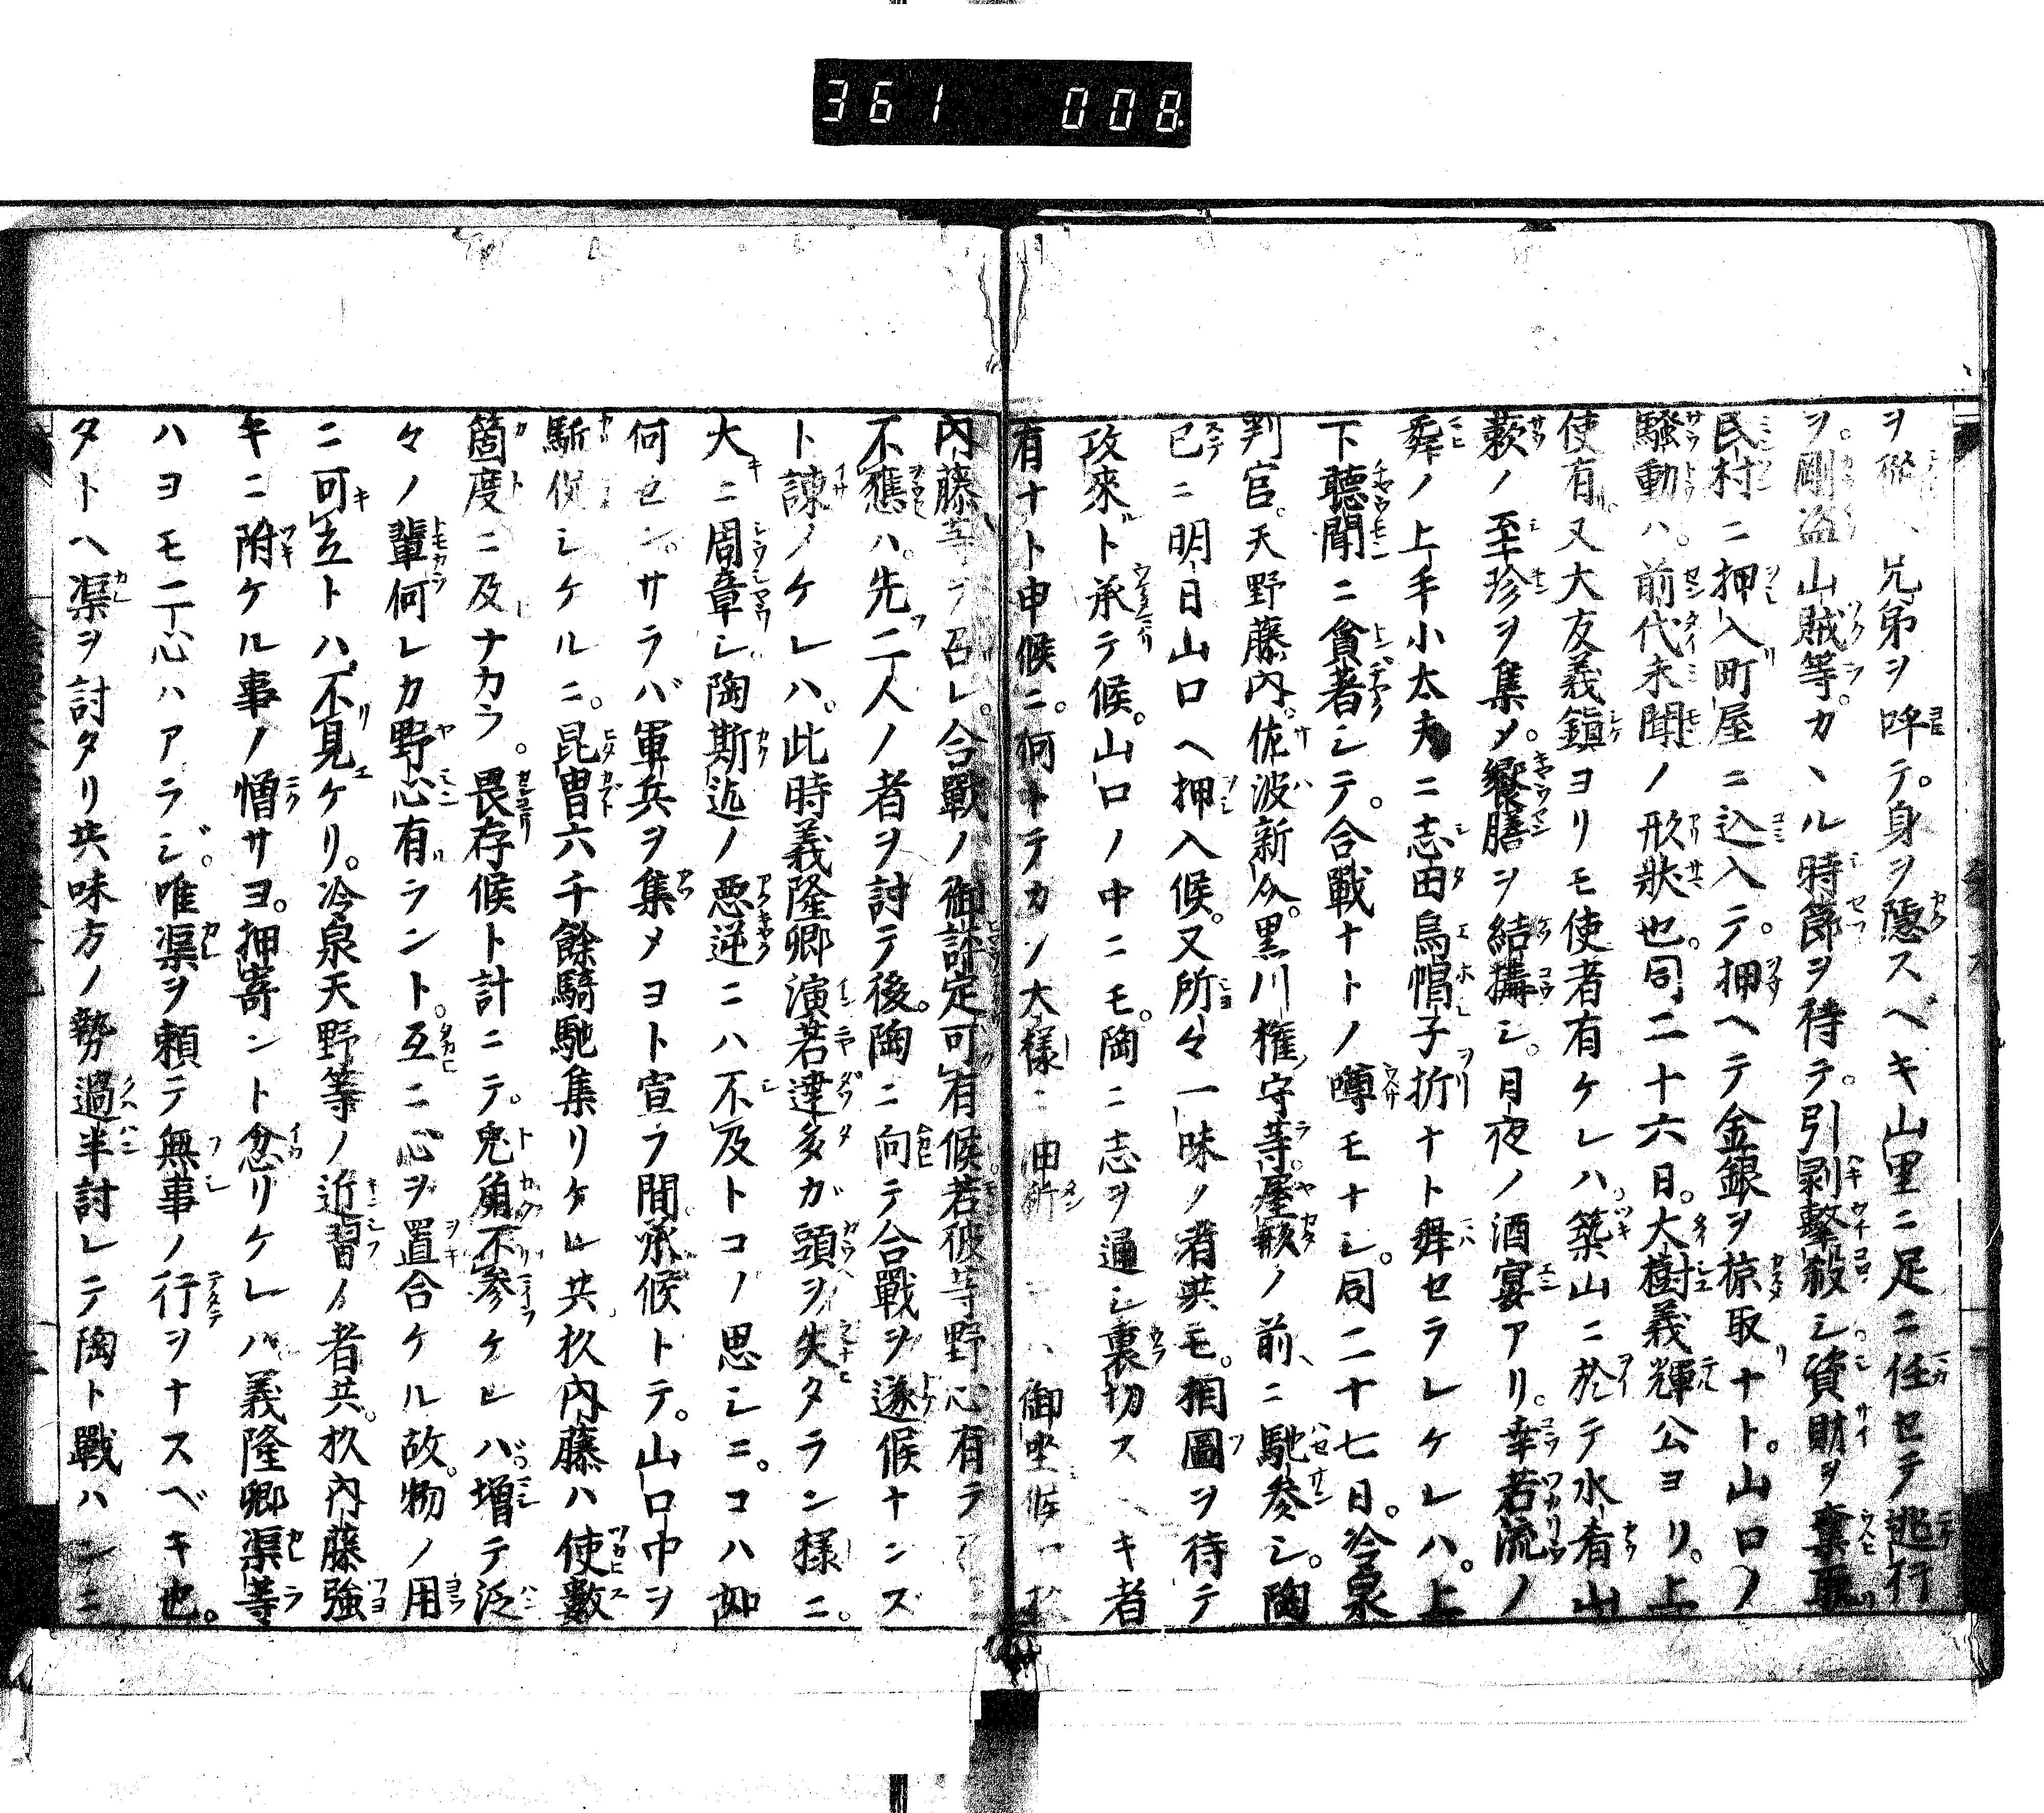 361 008
ヲ 兄弟ヲ呼テ。身ヲ隱スベキ山里ニ足ニ任セテ逃行
ヲ。剛盗山賊等。カヽル時節ヲ待テ。引剥擊殺シ資財ヲ奪取
民村ニ押入町屋ニ込入テ。押ヘテ金銀ヲ掠取ナト。山口ノ
騷動ハ。前代未聞ノ形狀也。同二十六日。大樹義輝公ヨリ。上
使有。又大友義鎭ヨリモ使者有ケレハ。築山ニ於テ水有山
藪ノ至珍ヲ集メ。饗膳ヲ結搆シ。月夜ノ酒宴アリ。幸若流ノ
舞ノ上手小太夫ニ志田烏帽子折ナト舞セラレケレハ。上
下聽聞ニ貪著シテ。合戰ナトノ噂モナシ。同二十七日。冷泉
判官。天野藤內。佐波新 。黒川權守等。屋敷ノ前ニ馳參シ。陶
已ニ明日山口ヘ押入候。又所々一味ノ者共モ。相圖ヲ待テ
攻來ト承テ候。山口ノ中ニモ。陶ニ志ヲ通シ裏切スヘキ者
有ナト申候ニ。何トテカン大樣ニ由斷 ハ御坐候
內藤等ヲ召レ。合戰ノ御評定可有候若彼等野心有ラ
不應ハ。先二人ノ者ヲ討テ後。陶ニ向テ合戰ヲ遂候ナンズ
ト諫ノケレハ。此時義隆卿演若達多ガ頭ヲ失タラン樣ニ。
大ニ周章シ。陶斯迄ノ惡逆ニハ不及トコノ思シニ。コハ如
何セン。サラバ軍兵ヲ集メヨト宣ラ間。承候トテ。山口中ヲ
駈催シケルニ。昆冑六千餘騎馳集リケレ共杦內藤ハ使數
箇度ニ及ナカラ。畏存候ト計ニテ。兎角不參ケレバ。增テ泛
々ノ輩何レカ野心有ラント。互ニ心ヲ置合ケル故。物ノ用
ニ可立トハ不見ケリ。冷泉天野等ノ近習ノ者共。杦內藤強
キニ附ケル事ノ憎サヨ。押寄ント忿リケレハ義隆卿渠等
ハヨモ二心ハアラジ。唯渠ヲ頼テ無事ノ行ヲナスベキ也。
タトヘ渠ヲ討タリ共味方ノ勢過半討レテ陶ト戰ハンニ